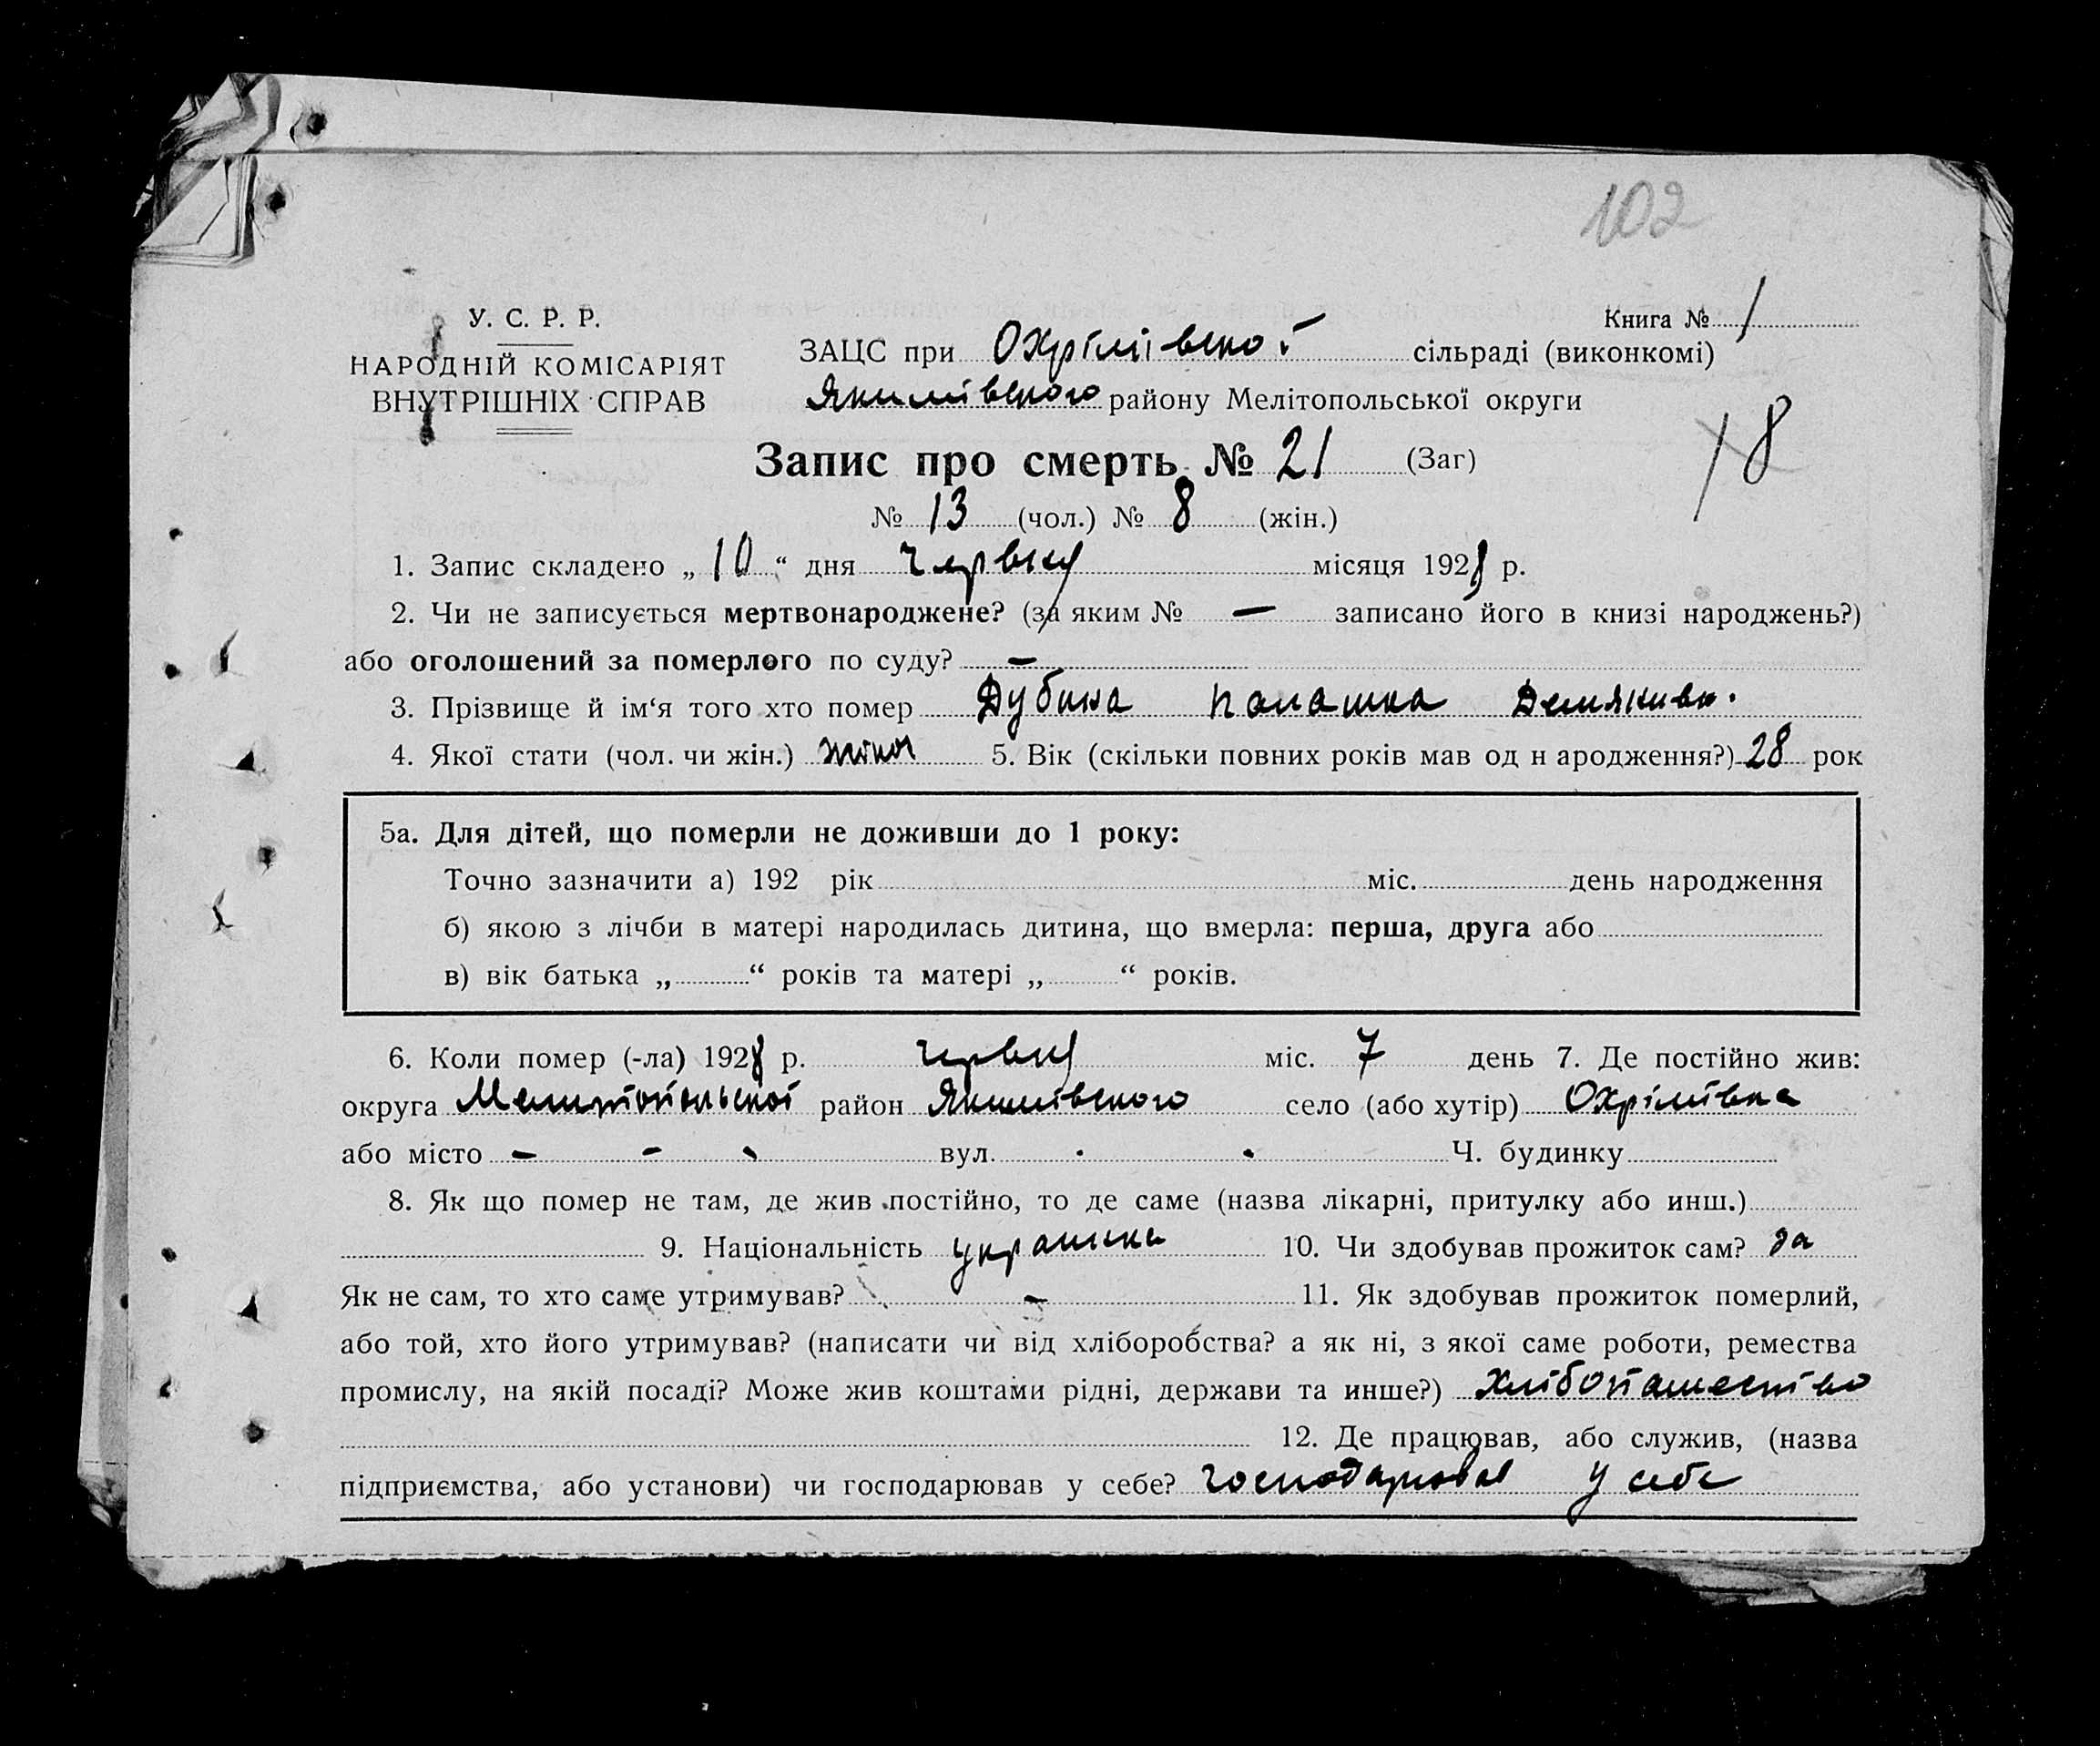 102
У. С. Р. Р.
НАРОДНІЙ КОМІСАРІЯТ
ВНУТРІШНІХ СПРАВ
Книга № 1
ЗАЦС при Охрімівской сільраді (виконкомі)
Якимівского району Мелітопольської округи
18
Запис про смерть № 21 (Заг)
№ 13 (чол.) № 8 (жін.)
1. Запис складено „ 10 “ дня червня місяця 1928 р.
2. Чи не записується мертвонароджене? (за яким № — записано його в книзі народжень?)
або оголошений за померлого по суду? —
3. Прізвище й ім‘я того хто помер Дубина Палашка
4. Якої стати (чол. чи жін.) жіноч 5. Вік (скільки повних років мав од н ародження?) 28 рок
5а. Для дітей, що померли не доживши до 1 року:
Точно зазначити а) 192 рік міс. день народження
б) якою з лічби в матері народилась дитина, що вмерла: перша, друга або
в) вік батька „ “ років та матері „ “ років.
6. Коли помер (-ла) 1928 р. червня міс. 7 день 7. Де постійно жив:
округа Мелитопольскої район Якимівского село (або хутір) Охрімівка
або місто - - - вул. - - Ч. будинку
8. Як що помер не там, де жив постійно, то де саме (назва лікарні, притулку або инш.)
9. Національність українка 10. Чи здобував прожиток сам? да
Як не сам, то хто саме утримував? - 11. Як здобував прожиток померлий,
або той, хто його утримував? (написати чи від хліборобства? а як ні, з якої саме роботи, ремества
промислу, на якій посаді? Може жив коштами рідні, держави та инше?) Хлібопашество
12. Де працював, або служив, (назва
підприємства, або установи) чи господарював у себе? господарювал у себе